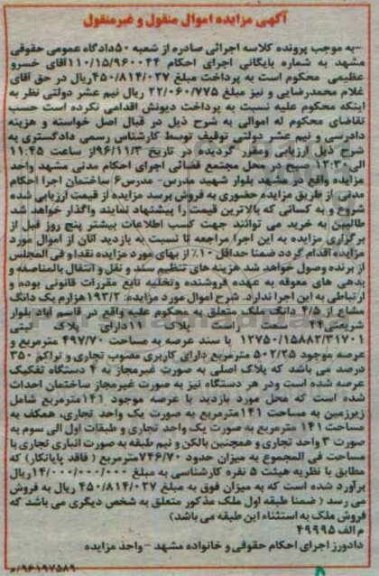 آگهی مزایده اموال منقول و غیرمنقول
-به موجب پرونده کلاسه اجرائی صادره از شعبه ۵۰دادگاه عمومی حقوقی
مشهد به شماره بایگانی اجرای احکام ۱۱۰/۱۵/۹۶۰۰۴۴آقای خسرو
عظیمی محکوم است به پرداخت مبلغ ۴۵۰/۸۱۴/۰۲۷ریال در حق آقای
غلام محمدرضایی و نیز مبلغ ۲۲/۰۶۰/۷۷۵ ریال نیم عشر دولتی نظر به
اینکه محکوم علیه نسبت به پرداخت دیونش اقدامی نکرده است حسب
تقاضای محکوم له اموالی به شرح ذیل در قبال اصل خواسته و هزینه
دادرسی و نیم عشر دولتی توقیف توسط کارشناس رسمی دادگستری به
شرح ذیل ارزیابی ومقرر گردیده در تاریخ ۹۶/۱۱/۳از ساعت ۱۱:۴۵
الی ۱۲:۳۰ صبح در محل مجتمع قضائی اجرای احکام مدنی مشهد واحد
مزایده واقع در مشهد بلوار شهید مدرس- مدرس۶ ساختمان اجرا احکام
مدنی، از طریق مزایده حضوری به فروش برسد مزایده از قیمت ارزیابی شده
شروع و به کسانی که بالاترین قیمت را پیشنهاد نمایند واگذار خواهد شد
طالبین به خرید می توانند جهت کسب اطلاعات بیشتر پنج روز قبل از
برگزاری مزایده به این اجرا مراجعه تا نسبت به بازدید آنان از اموال مورد
مزایده اقدام گردد ضمنا حداقل ۱۰٪ از بهای مورد مزایده نقدا و فی المجلس
از برنده وصول خواهد شد هزینه های تنظیم سند و نقل و انتقال بالمناصفه و
بدهی های معوقه به عهده فروشنده وتخلیه تابع مقررات قانونی بوده و
ارتباطی به این اجرا ندارد. شرح اموال مورد مزایده: ۱۹۳/۲هزارم یک دانگ
مشاع از ۴/۵ دانگ ملک متعلق به محکوم علیه واقع در قاسم آباد بلوار
شریعتی۴۴ سمت راست پلاک ۱۱دارای پلاک ثبتی
۱۲۷۵۰/۱۵۸۸۲/۳۱۷۰۱ با سند عرصه به مساحت ۴۹۷/۷۰ مترمربع و
عرصه موجود ۵۰۲/۲۵ مترمربع دارای کاربری مصوب تجاری و تراکم ۳۵۰
درصد می باشد که پلاک اصلی به صورت غیرمجاز به ۴ دستگاه تفکیک
عرصه شده است ودر هر دستگاه نیز به صورت غیرمجاز ساختمان احداث
شده است که محل مورد بازدید با عرصه موجود ۱۴۱مترمربع شامل
زیرزمین به مساحت ۱۴۱مترمربع به صورت یک واحد تجاری، همکف به
مساحت ۱۴۱ مترمربع به صورت یک واحد تجاری و طبقات اول الی سوم به
صورت ۳ واحد تجاری و همچنین بالکن و نیم طبقه به صورت انباری تجاری با
مساحت فی المجموع به میزان حدود ۷۴۶/۷۰مترمربع ( فاقد پایانکار) که
مطابق با نظریه هیئت ۵ نفره کارشناسی به مبلغ ۱۴/۰۰۰/۰۰۰/۰۰۰ریال
برآورد شده است که به میزان فوق به مبلغ ۴۵۰/۸۱۴/۰۲۷ ریال به فروش
می رسد ( ضمنا طبقه اول ملک مذکور متعلق به شخص دیگری می باشد که
فروش ملک به استثناء این طبقه می باشد)
م الف ۴۹۹۹۵
دادورز اجرای احکام حقوقی و خانواده مشهد -واحد مزایده
۹۶۱۹۷۵۸۹/م